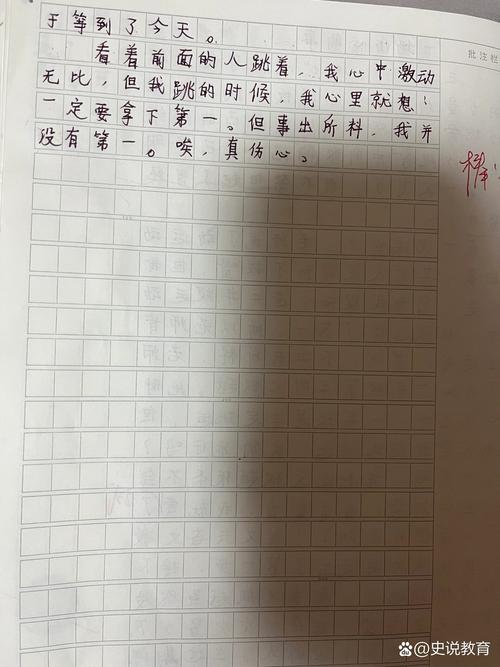 于等到了今天。
看着前面的人跳着，我心中激动
无比，但我跳的时候，我心里就想：
一定要拿下第一。但事出所料，我并
没有第一。唉，真伤心。
批注栏
棒！
史说教育